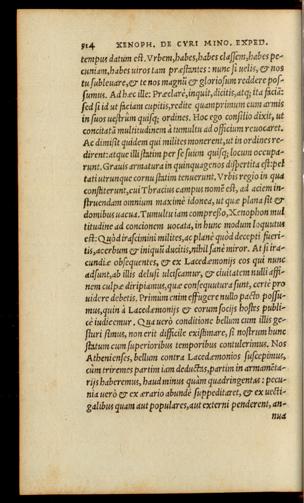 514 XENOPH. DE CYRI MINO. EXPED.
tempus datum est. Vrbem, habes, habes classem, habes pe-
cuniam, habes uiros tam præstantes: nunc si uelis, & nos
tu subleuare, & te nos magnũ & gloriosum reddere pos-
sumus. Ad hæc ille: Præclarè, inquit, dicitis, atq; ita faciã:
sed si id ut faciam cupitis, redite quamprimum cum armis
in suos uestrûm quisq; ordines. Hoc ego consilio dixit, ut
concitatã multitudinem à tumultu ad officium reuocaret.
Ac dimisit quidem qui milites monerent, ut in ordines re-
dirent: atque illi statim per se suum quisq; locum occupa-
runt. Grauis armatura in quinquagenos dispertita est: pel
tati utrunque cornu statim tenuerunt. Vrbis regio in qua
constiterunt, cui Thracius campus nomẽ est, ad aciem in-
struendam omnium maximè idonea, ut quæ plana sit &
domibus uacua. Tumultu iam compresso, Xenophon mul
titudine ad concionem uocata, in hunc modum loquutus
est: Quòd irascimini milites, ac planè quòd decepti fueri-
tis, acerbum & iniquũ ducitis, nihil sanè miror. At si ira-
cundiæ obsequentes, & ex Lacedæmonijs eos qui nunc
adsunt, ab illis delusi ulciscamur, & ciuitatem nulli affi-
nem culpæ diripiamus, quæ consequutura sunt, certè pro
uidere debetis. Primùm enim effugere nullo pacto possu-
mus, quin à Lacedæmonijs & eorum socijs hostes publi-
cè iudicemur. Qua uerò conditione bellum cum illis ge-
sturi simus, non erit difficile existimare, si nostrum hunc
statum cum superioribus temporibus contulerimus. Nos
Athenienses, bellum contra Lacedæmonios suscepimus,
cùm triremes partim iam deductas, partim in armamẽta-
rijs haberemus, haud minus quàm quadringentas: pecu-
nia uerò & ex ærario abundè suppeditaret, & ex uecti-
galibus quam aut populares, aut externi penderent, an-
nua